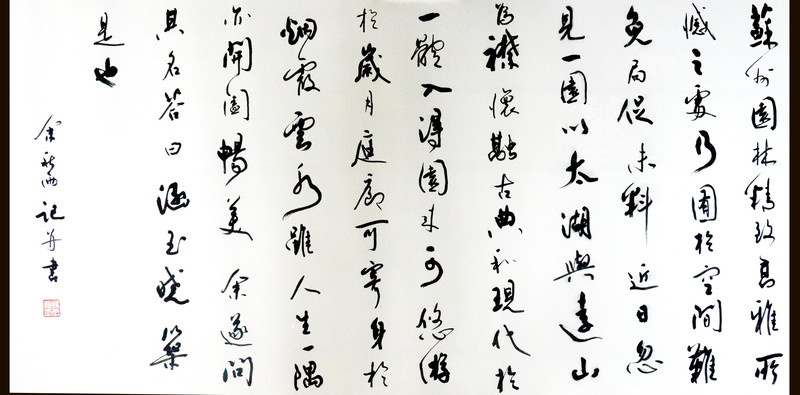 蘇州園林精致高雅所
憾之處乃囿於空間難
免局促未料近日忽
見一園以太湖與遠山
為襟懷融古典和現代於
一體入得園來可悠游
於歲月庭廊可寄身於
烟霞雲水雖人生一隅
亦開闊暢美余遂問
其名答曰涵玉曉築
是也
余秋雨記并書